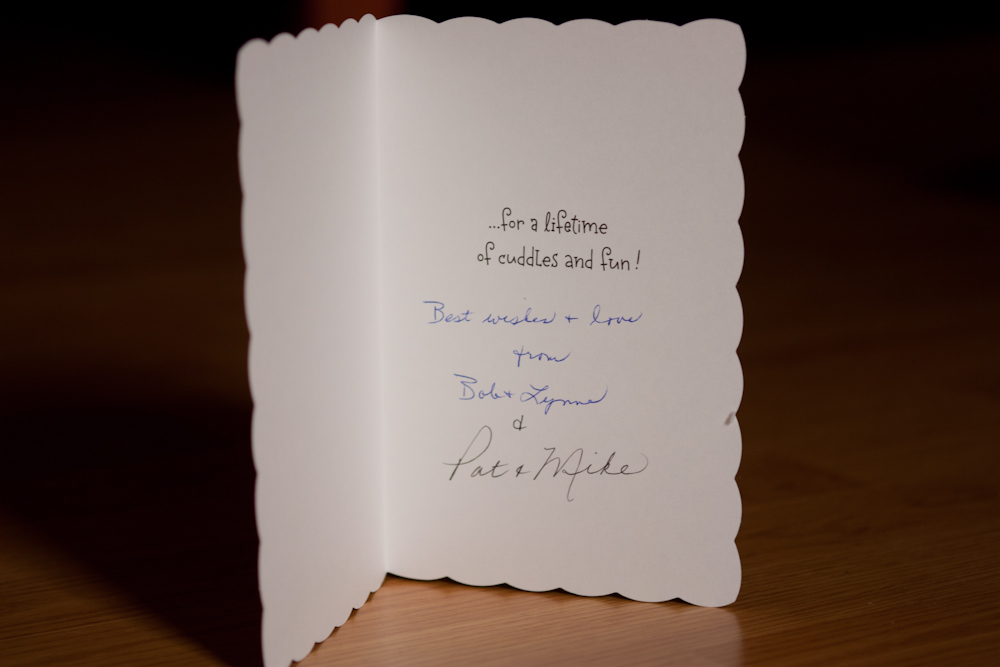 ...for a lifetime
of cuddles and fun!
Best wishes + love
from
Bob + Lynne
&
Pat & Mike